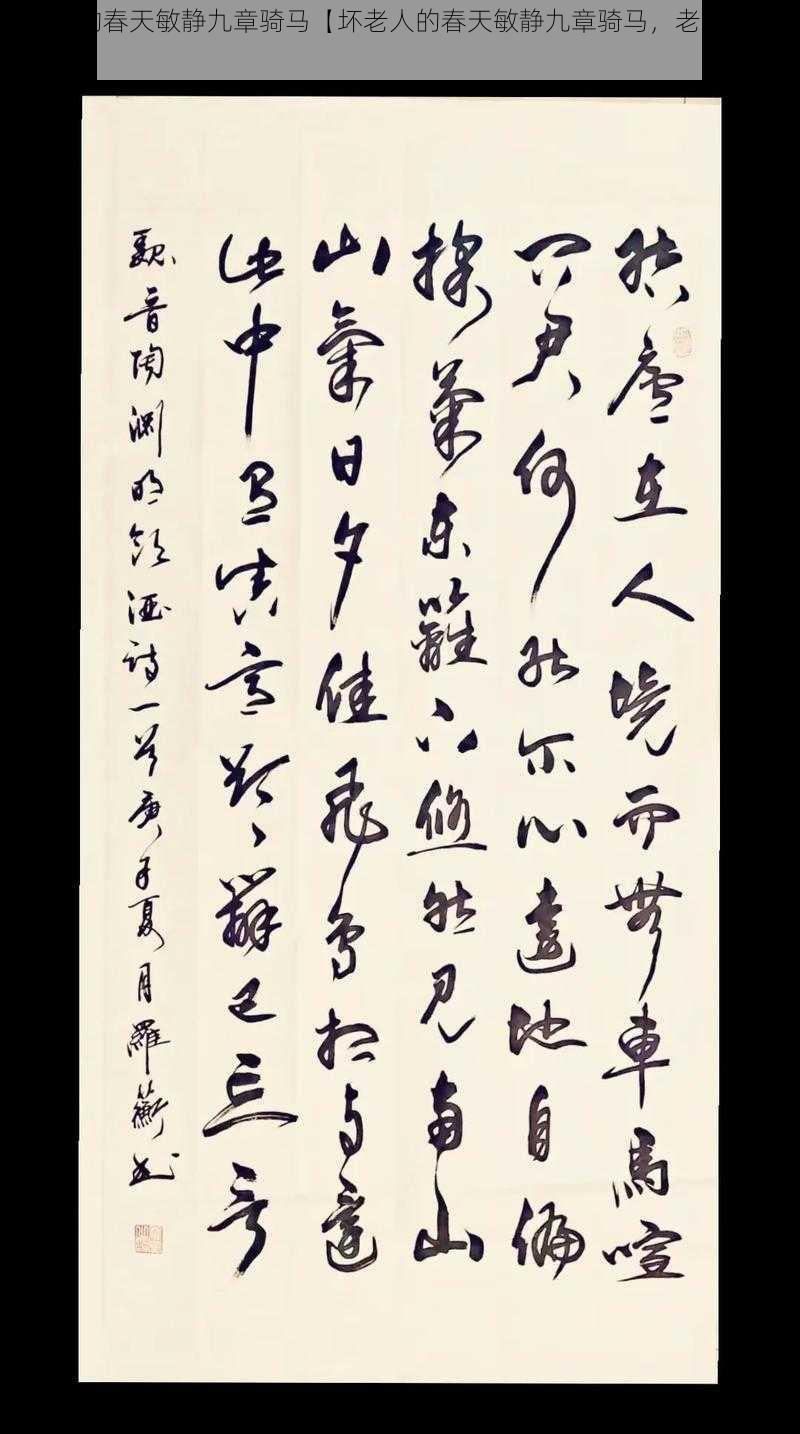 的春天敏静九章骑马【坏老人的春天敏静九章骑马，老
结廬在人境而無車馬喧
问君何能尔心遠地自偏
採菊东籬下悠然見南山
山氣日夕佳飛鸟相与還
此中有真意欲辨已忘言
魏晋陶渊明饮酒诗一首庚子夏月羅